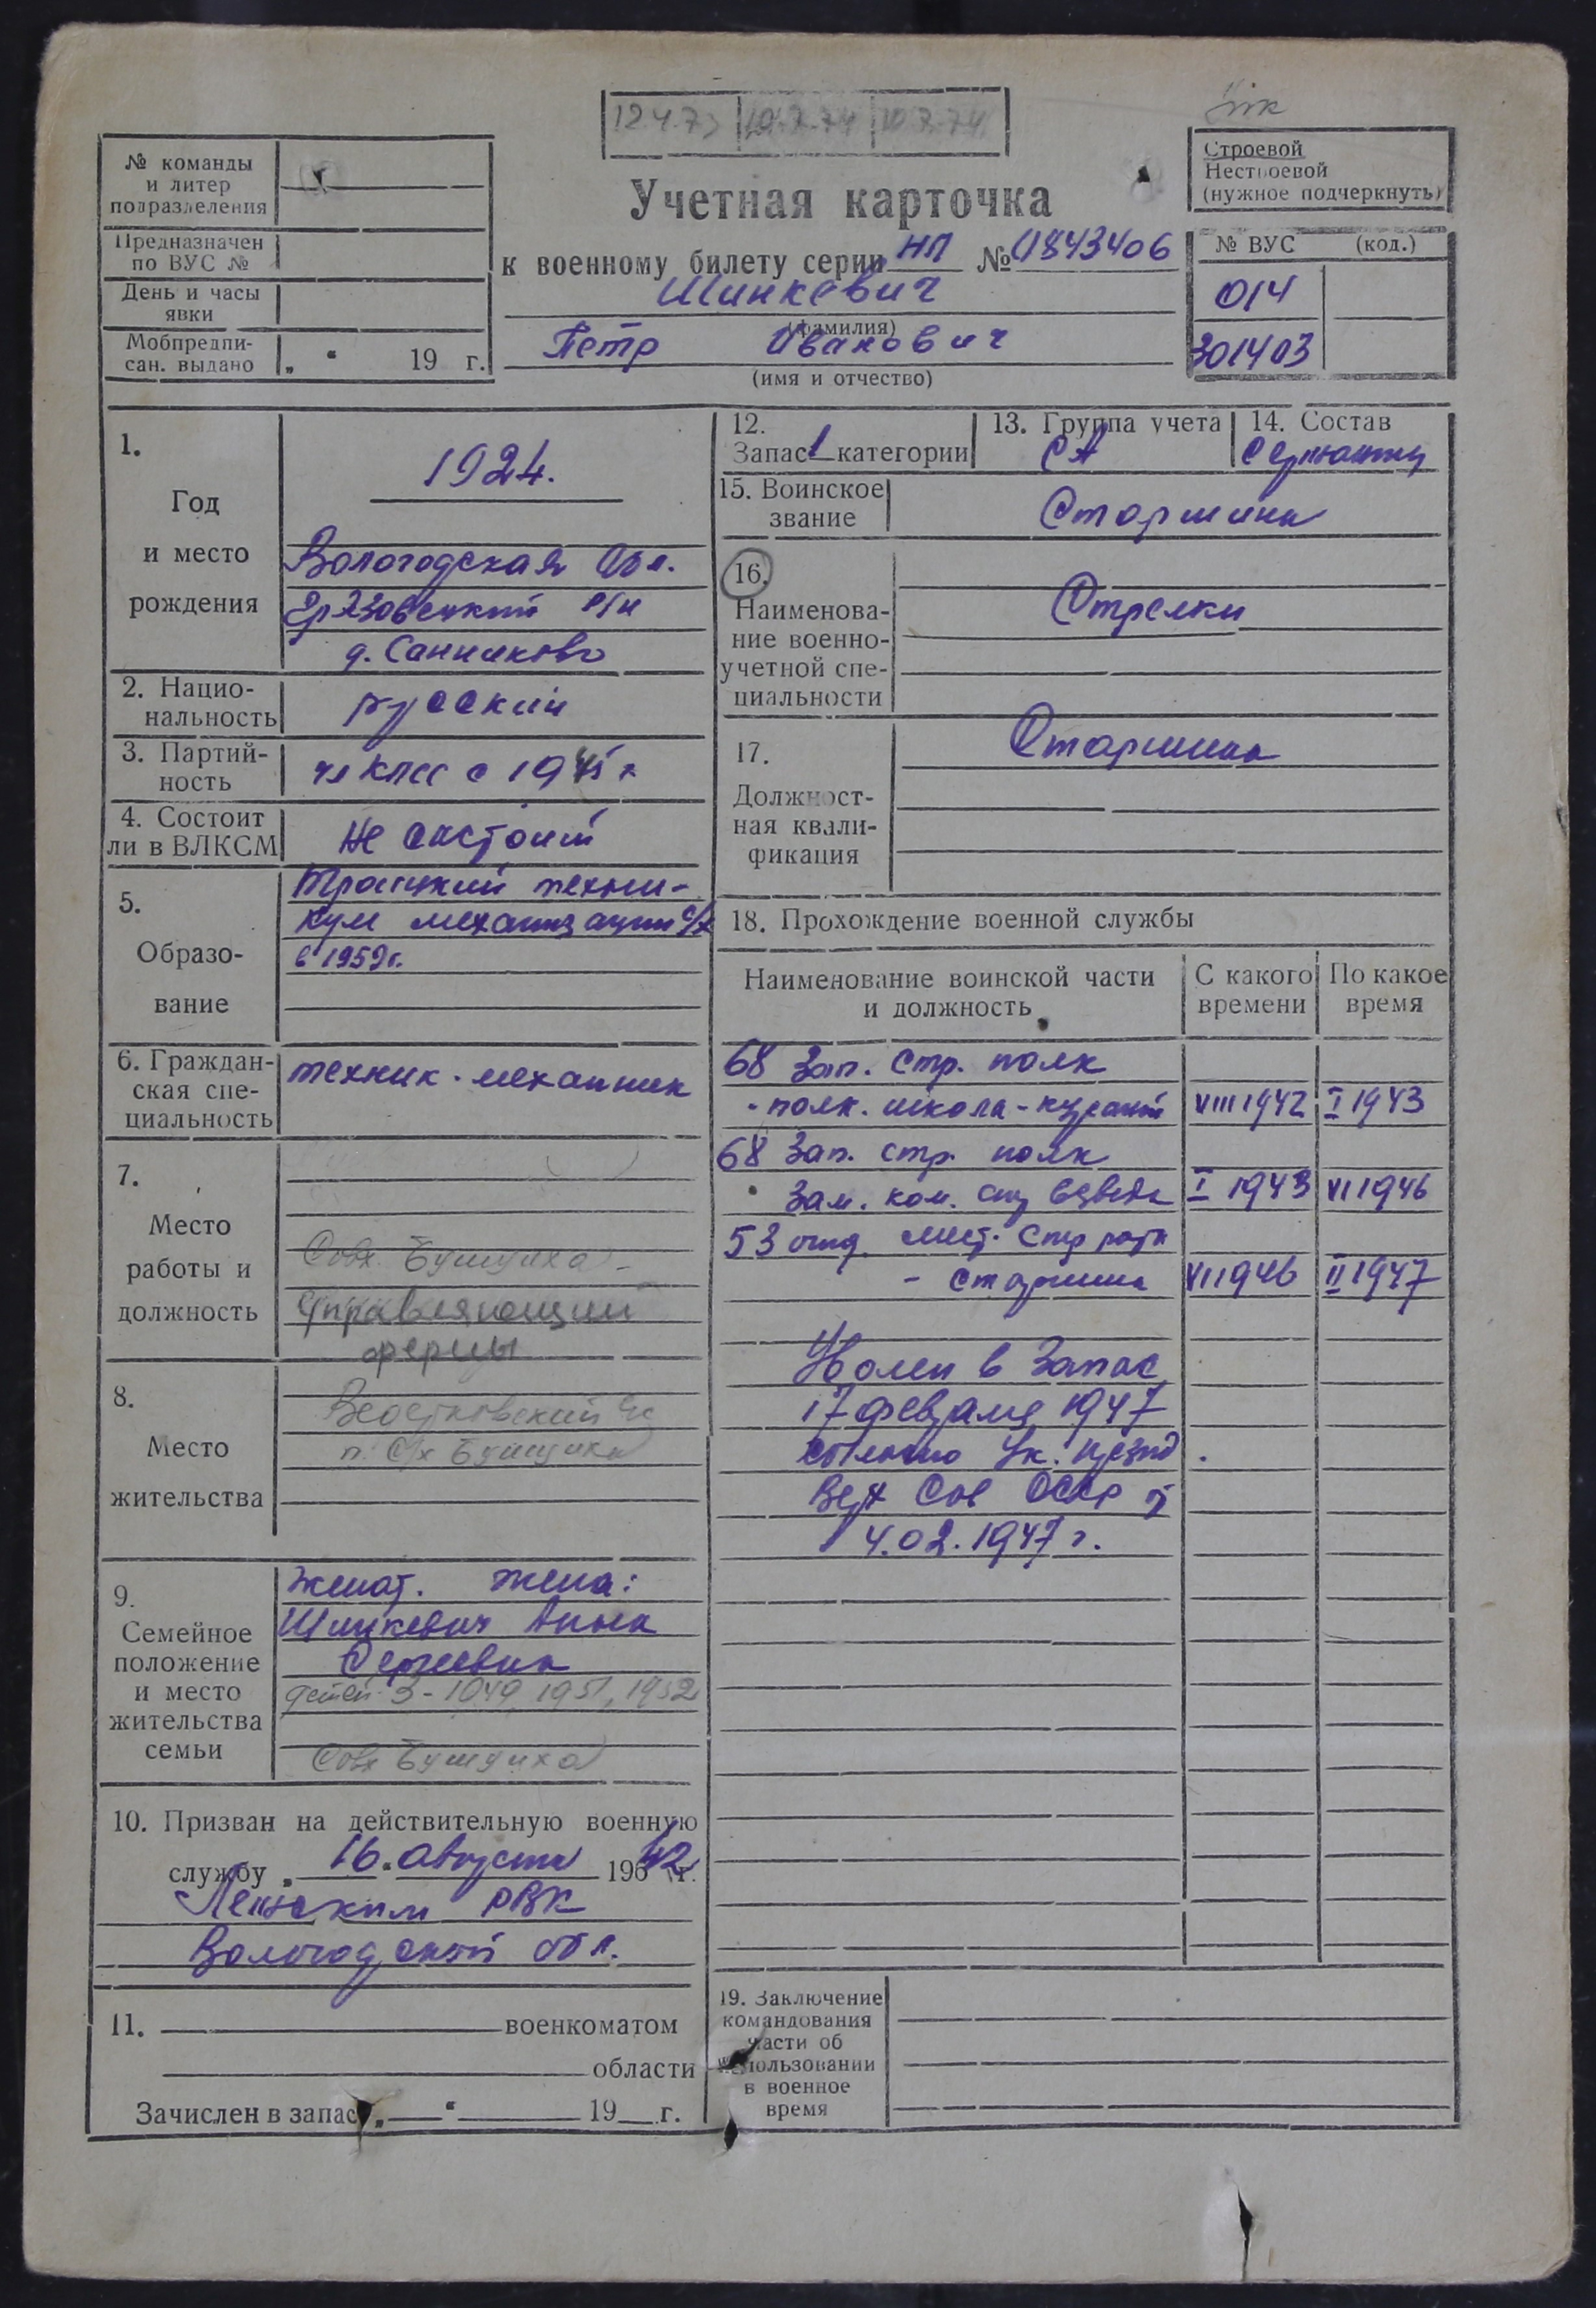 12.4.73 10.7.74 10.7.74
№ команды
и литер
подразделения
Предназначен
по ВУС №
День и часы
явки
Мобпредпи-
сан. выдано „ “ 19 г.
Учетная карточка
к военному билету серии НП № 1843406
Шинкевич
(фамилия)
Петр Иванович
(имя и отчество)
Строевой
Нестроевой
(нужное подчеркнуть)
№ ВУС (код.)
014
301403
1.
Год
и место
рождения
1924.
Вологодская обл.
Грязовецкий р/н
д. Санниково
2. Нацио-
нальность
русский
3. Партий-
ность
чл КПСС с 19
4. Состоит
ли в ВЛКСМ
Не состоит
5.
Образо-
вание
техни-
кум механизации с/х
в 1959г.
6. Граждан-
ская спе-
циальность
техник-механик
7.
Место
работы и
должность
Совх. Бушуиха
Управляющий
фермы
8.
Место
жительства
п. с/х Бушуиха
9.
Семейное
положение
и место
жительства
семьи
женат. жена:
Шинкевич Анна
Сергеевна
детей 3 - 1949, 1951, 1952
Совх Бушуиха
10. Призван на действительную военную
службу „ 16 “ августа 1942 г.
РВК
Вологодской обл.
11. военкоматом
области
Зачислен в запас „ “ 19 г.
12.
Запас 1 категории
13. Группа учета
СА
14. Состав
Сержанты
15. Воинское
звание
Старшина
16.
Наименова-
ние военно-
учетной спе-
циальности
Стрелки
17.
Должност-
ная квали-
фикация
Старшина
18. Прохождение военной службы
Наименование воинской части
и должность
С какого
времени
По какое
время
68 Зап. стр. полк
- полк. школа - курсант VIII 1942 I 1943
68 Зап. стр. полк
Зам. ком. стр взвода I 1943 VI 1946
53 отд. мест. стр рота
- старшина VI 1946 II 1947
Уволен в запас
17 февраля 1947
Ук. през.
Верх Сов СССР
4.02.1947 г.
19. Заключение
командования
части об
использовании
в военное
время